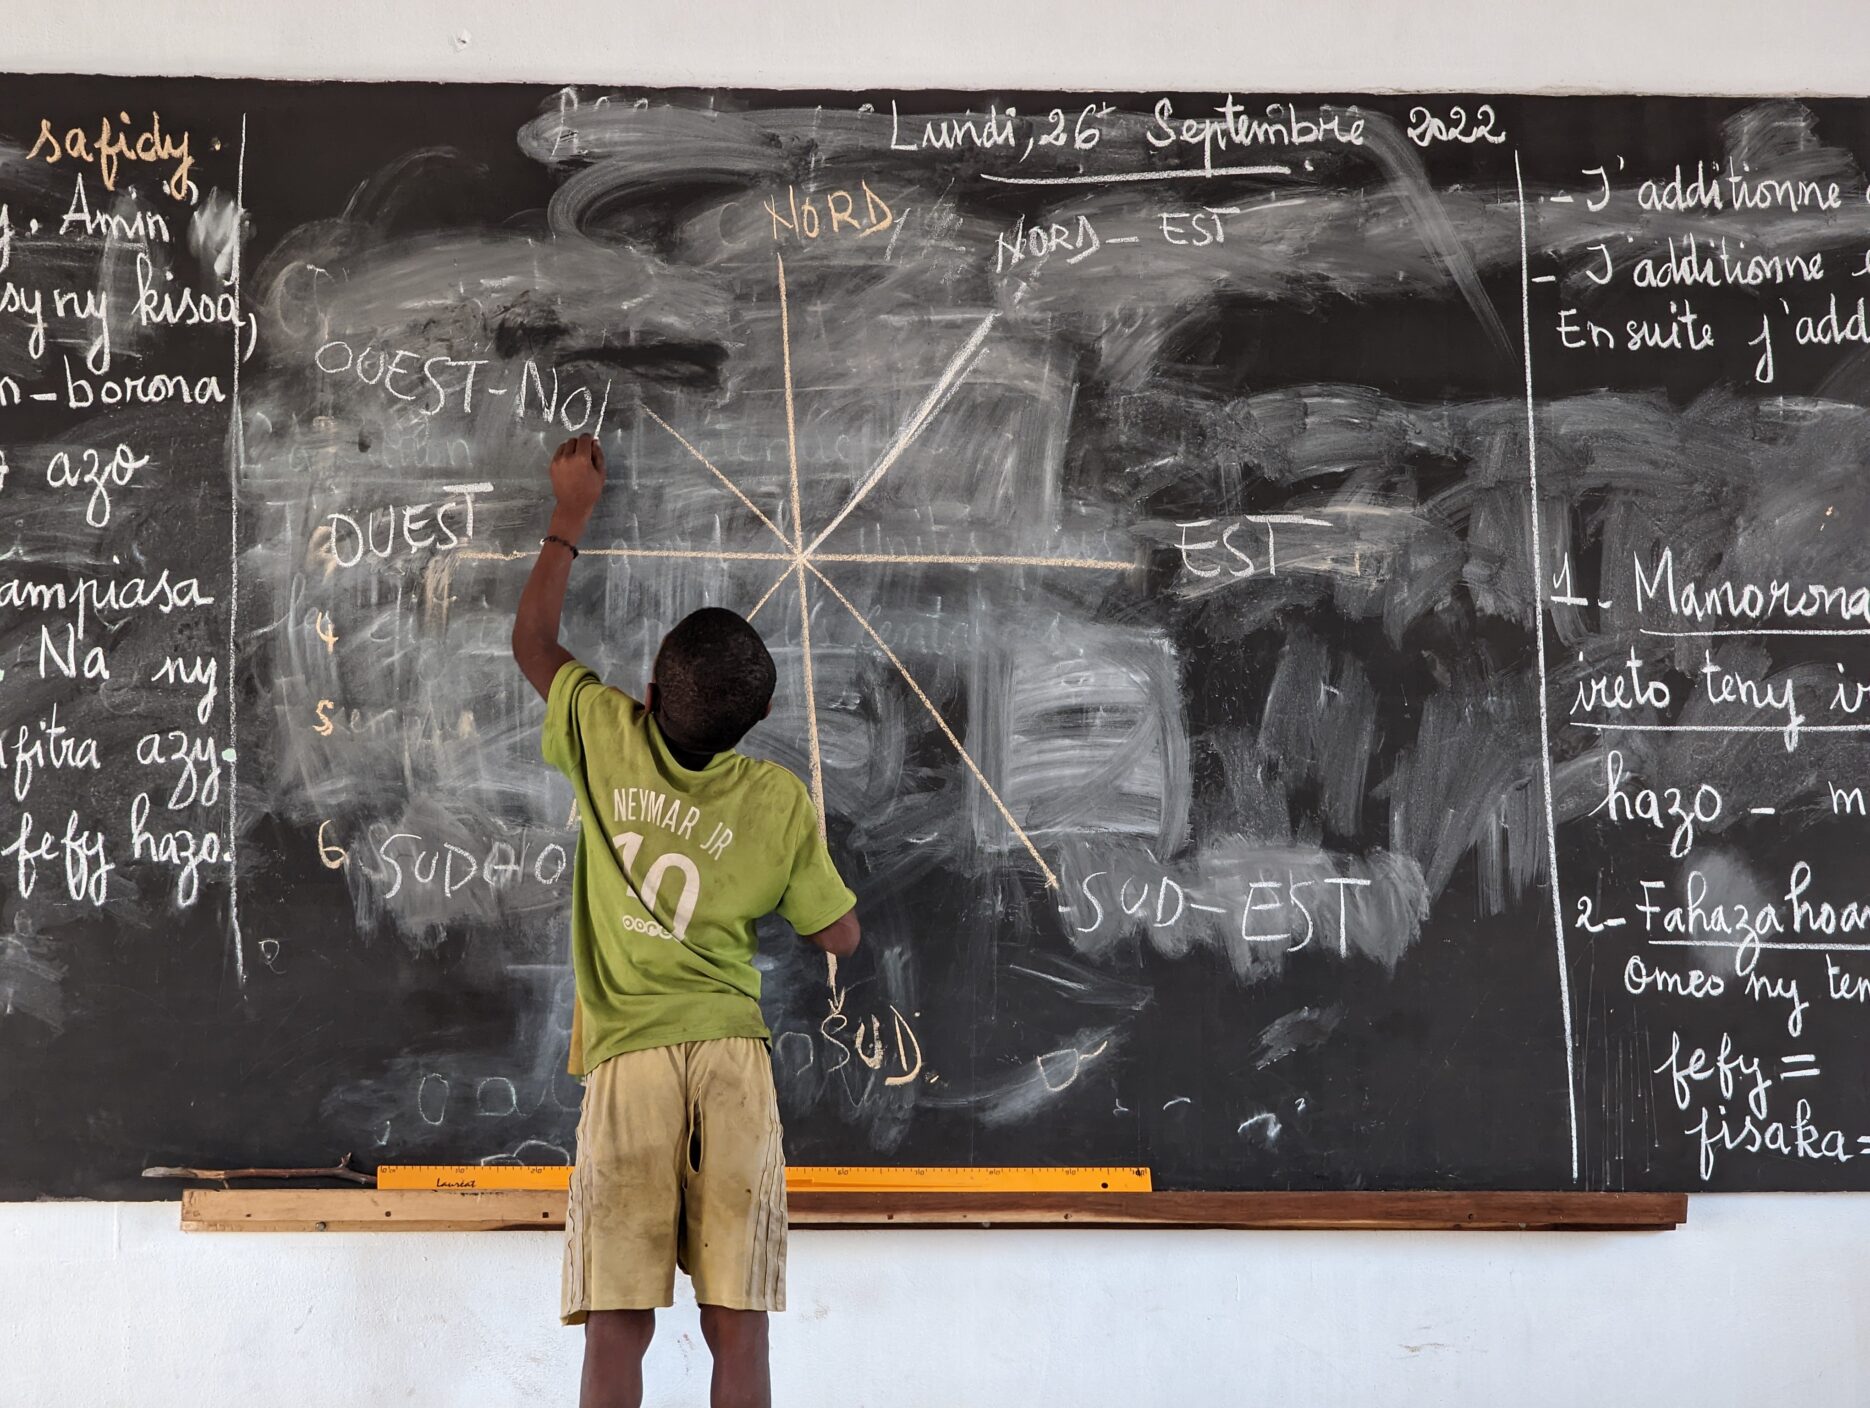 safidy.
Amin
sy ny kisoa,
n-borona
azo
ampiasa
. Na ny
fitra azy.
fefy hazo.
Lundi, 26 Septembre 2022
NORD
NORD-EST
OUEST-NO
OUEST
EST
4
5
6 SUD-O
SUD-EST
SUD.
NEYMAR JR
10
Lauréat
- J'additionne
- J'additionne
Ensuite j'add
1- Mamorona
ireto teny ir
hazo - m
2- Fahazahoa
omeo ny ten
fefy =
fisaka =